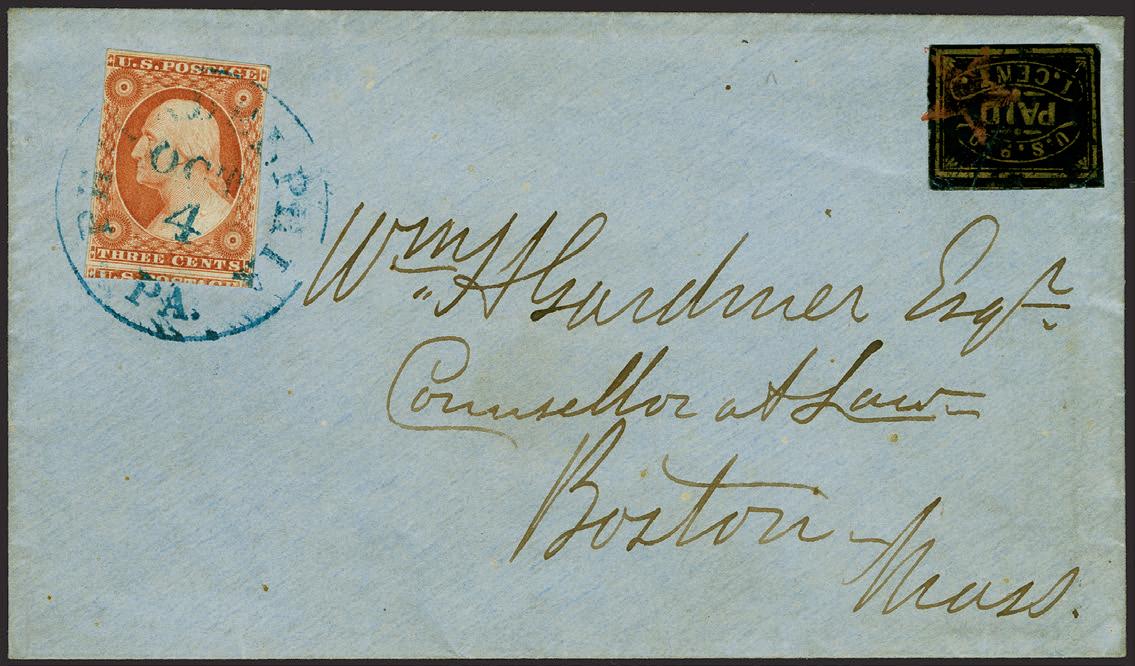 U.S. POSTAGE
THREE CENTS
U.S. POSTAGE
PHILADELPHIA
OCT
4
PA.
U.S. P.O.
PAID
1. CENT.
Wm H Gardiner Esqr.
Counsellor at Law
Boston
Mass.